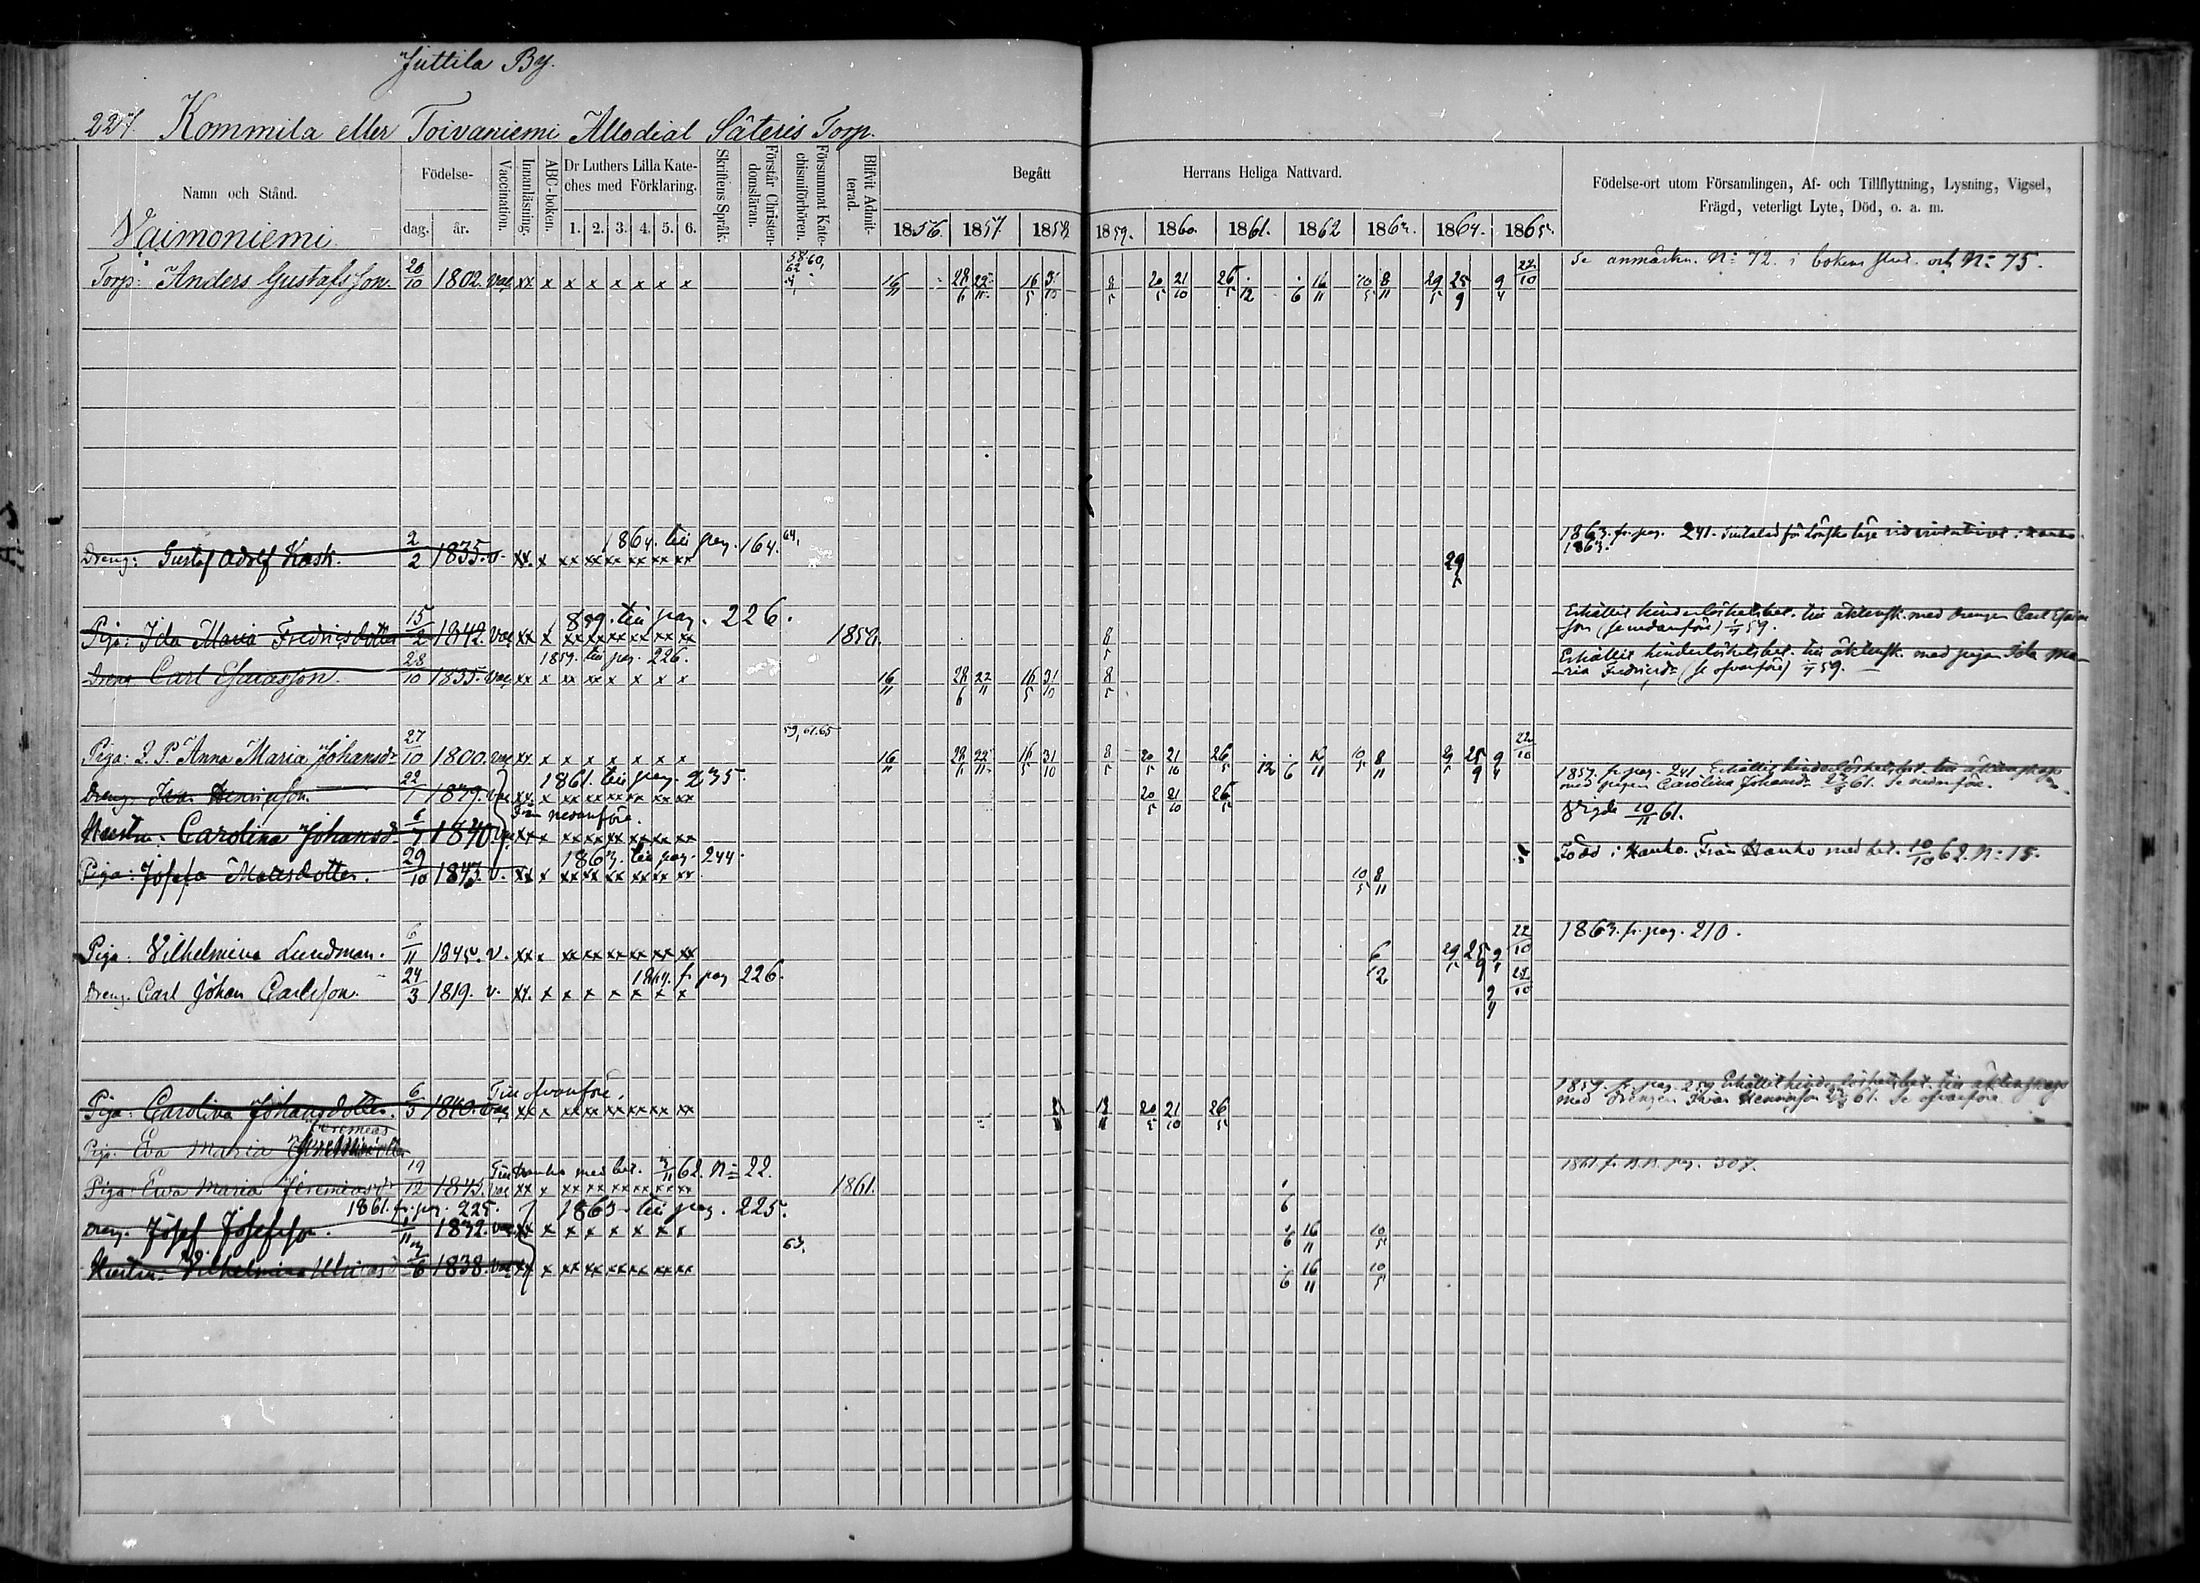 Juttila By.
227. Kommila eller Toivaniemi Allodial Säteris Torp.
Namn och Stånd. Födelse- dag. år. Vaccination. Innanläsning. ABC-boken. Dr Luthers Lilla Kateches med Förklaring. 1. 2. 3. 4. 5. 6. Skriftens Språk. Förstår Christendomsläran. Försummat Katechismiförhören. Blifvit Admitterad. Begått Herrans Heliga Nattvard. 1856. 1857 1858. 1859. 1860. 1861. 1862 1863. 1864. 1865. Födelse-ort utom Församlingen, Af- och Tillflyttning, Lysning, Vigsel, Frägd, veterligt Lyte, Död, o. a. m.
Vaimoniemi
Torp: Anders Gustafsson. 20/10 1802. vac xx x x x x x x x 58. 60, 62 16/11 28/6 22/11 16/5 31/10 8/5 20/5 21/10 26/5 12 6 16/11 10/5 8/11 29/5 25/9 9/4 22/10 Se anmärkn. N: 72. i bokens slut. och N: 75.
1864. till pag. 164. 64,
Dreng: Gustaf Adolf Kask. 2/2 1835. v. xx x xx xx xx xx xx xx 29/5 1863. fr. pag. 241.
1863.
1859. till pag. 226.
Piga: Ida Maria Fredricsdotter 15/2 1842. vac xx x xx xx xx xx xx xx 1858. 8/5 Erhållit hinderlöshetsbet. till äktensk. med drengen Carl Esaias-
son (se nedanföre) 59.
1859. till pag. 226.
Dreng Carl Esaiasson. 28/10 1835. vac xx x x x x x x x 16/11 28/6 22/11 16/5 31/10 8/5 Erhållit hinderlöshetsbet. till äktensk. med pigan Ida Ma-
ria Fredricsd: (se ofvanföre) 59.
59, 61. 65
Piga: Anna Maria Johansd: 27/10 1800. vac xx. x x x x x x x 16/11 28/6 22/11 16/5 31/10 8/5 20/5 21/10 26/5 12 6 16/11 10/5 8/11 29/5 25/9 9/4 22/10
1861. till pag. 235.
Dreng: Ivar Henricsson. 22/1 1839. vac xx. x xx xx xx xx xx xx 20/5 21/10 26/5 1859. fr. pag. 241 Erhållit hinderlöshetsbet. till äktenskap
med pigan Carolina Johansd: 61. Se nedanföre.
Från nedanföre.
Hustru: Carolina Johansd: 1840. vac xx x xx xx xx xx xx xx Vigde 10/11 61.
1863. till pag. 244.
Piga: Josefa Mattsdotter. 29/10 1843. v. xx x xx xx xx xx xx xx 10/5 8/11 Född i Hauho. Från Hauho med bet. 10/10 62. N: 15.
Piga: Vilhelmina Lundman. 6/11 1845. v. xx x xx xx xx xx xx xx 6/12 29/5 25/9 9/4 22/10 1863. fr. pag. 210.
1864. fr pag 226.
Dreng: Carl Johan Carlsson. 24/3 1819. v. xx. x x x x x x x 9/4 22/10
Till ofvanföre.
Piga: Carolina Johansdotter. 1840. vac xx x xx xx xx xx xx xx 20/5 21/10 26/5 1859. fr. pag. 259 Erhållit hinderlöshetsbet. till äktenskap
med drengen Ivar Henricsson 61. Se ofvanföre
Jeremias
Piga: Eva Maria
Till Hauho med bet. 62. N: 22.
Piga Ewa Maria Jeremiasd: 19/12 1845. vac xx x xx xx xx xx xx xx 1861. 6 1861. fr. pag. 307.
1861. fr. pag. 225. 1863. till pag. 225.
Dreng. Josef Josefsson. 1832. vac xx x x x x x x x 6 16/11 10/5
63.
Hustru: Vilhelmina 1838. vac xx x xx xx xx xx xx xx 6 16/11 10/5